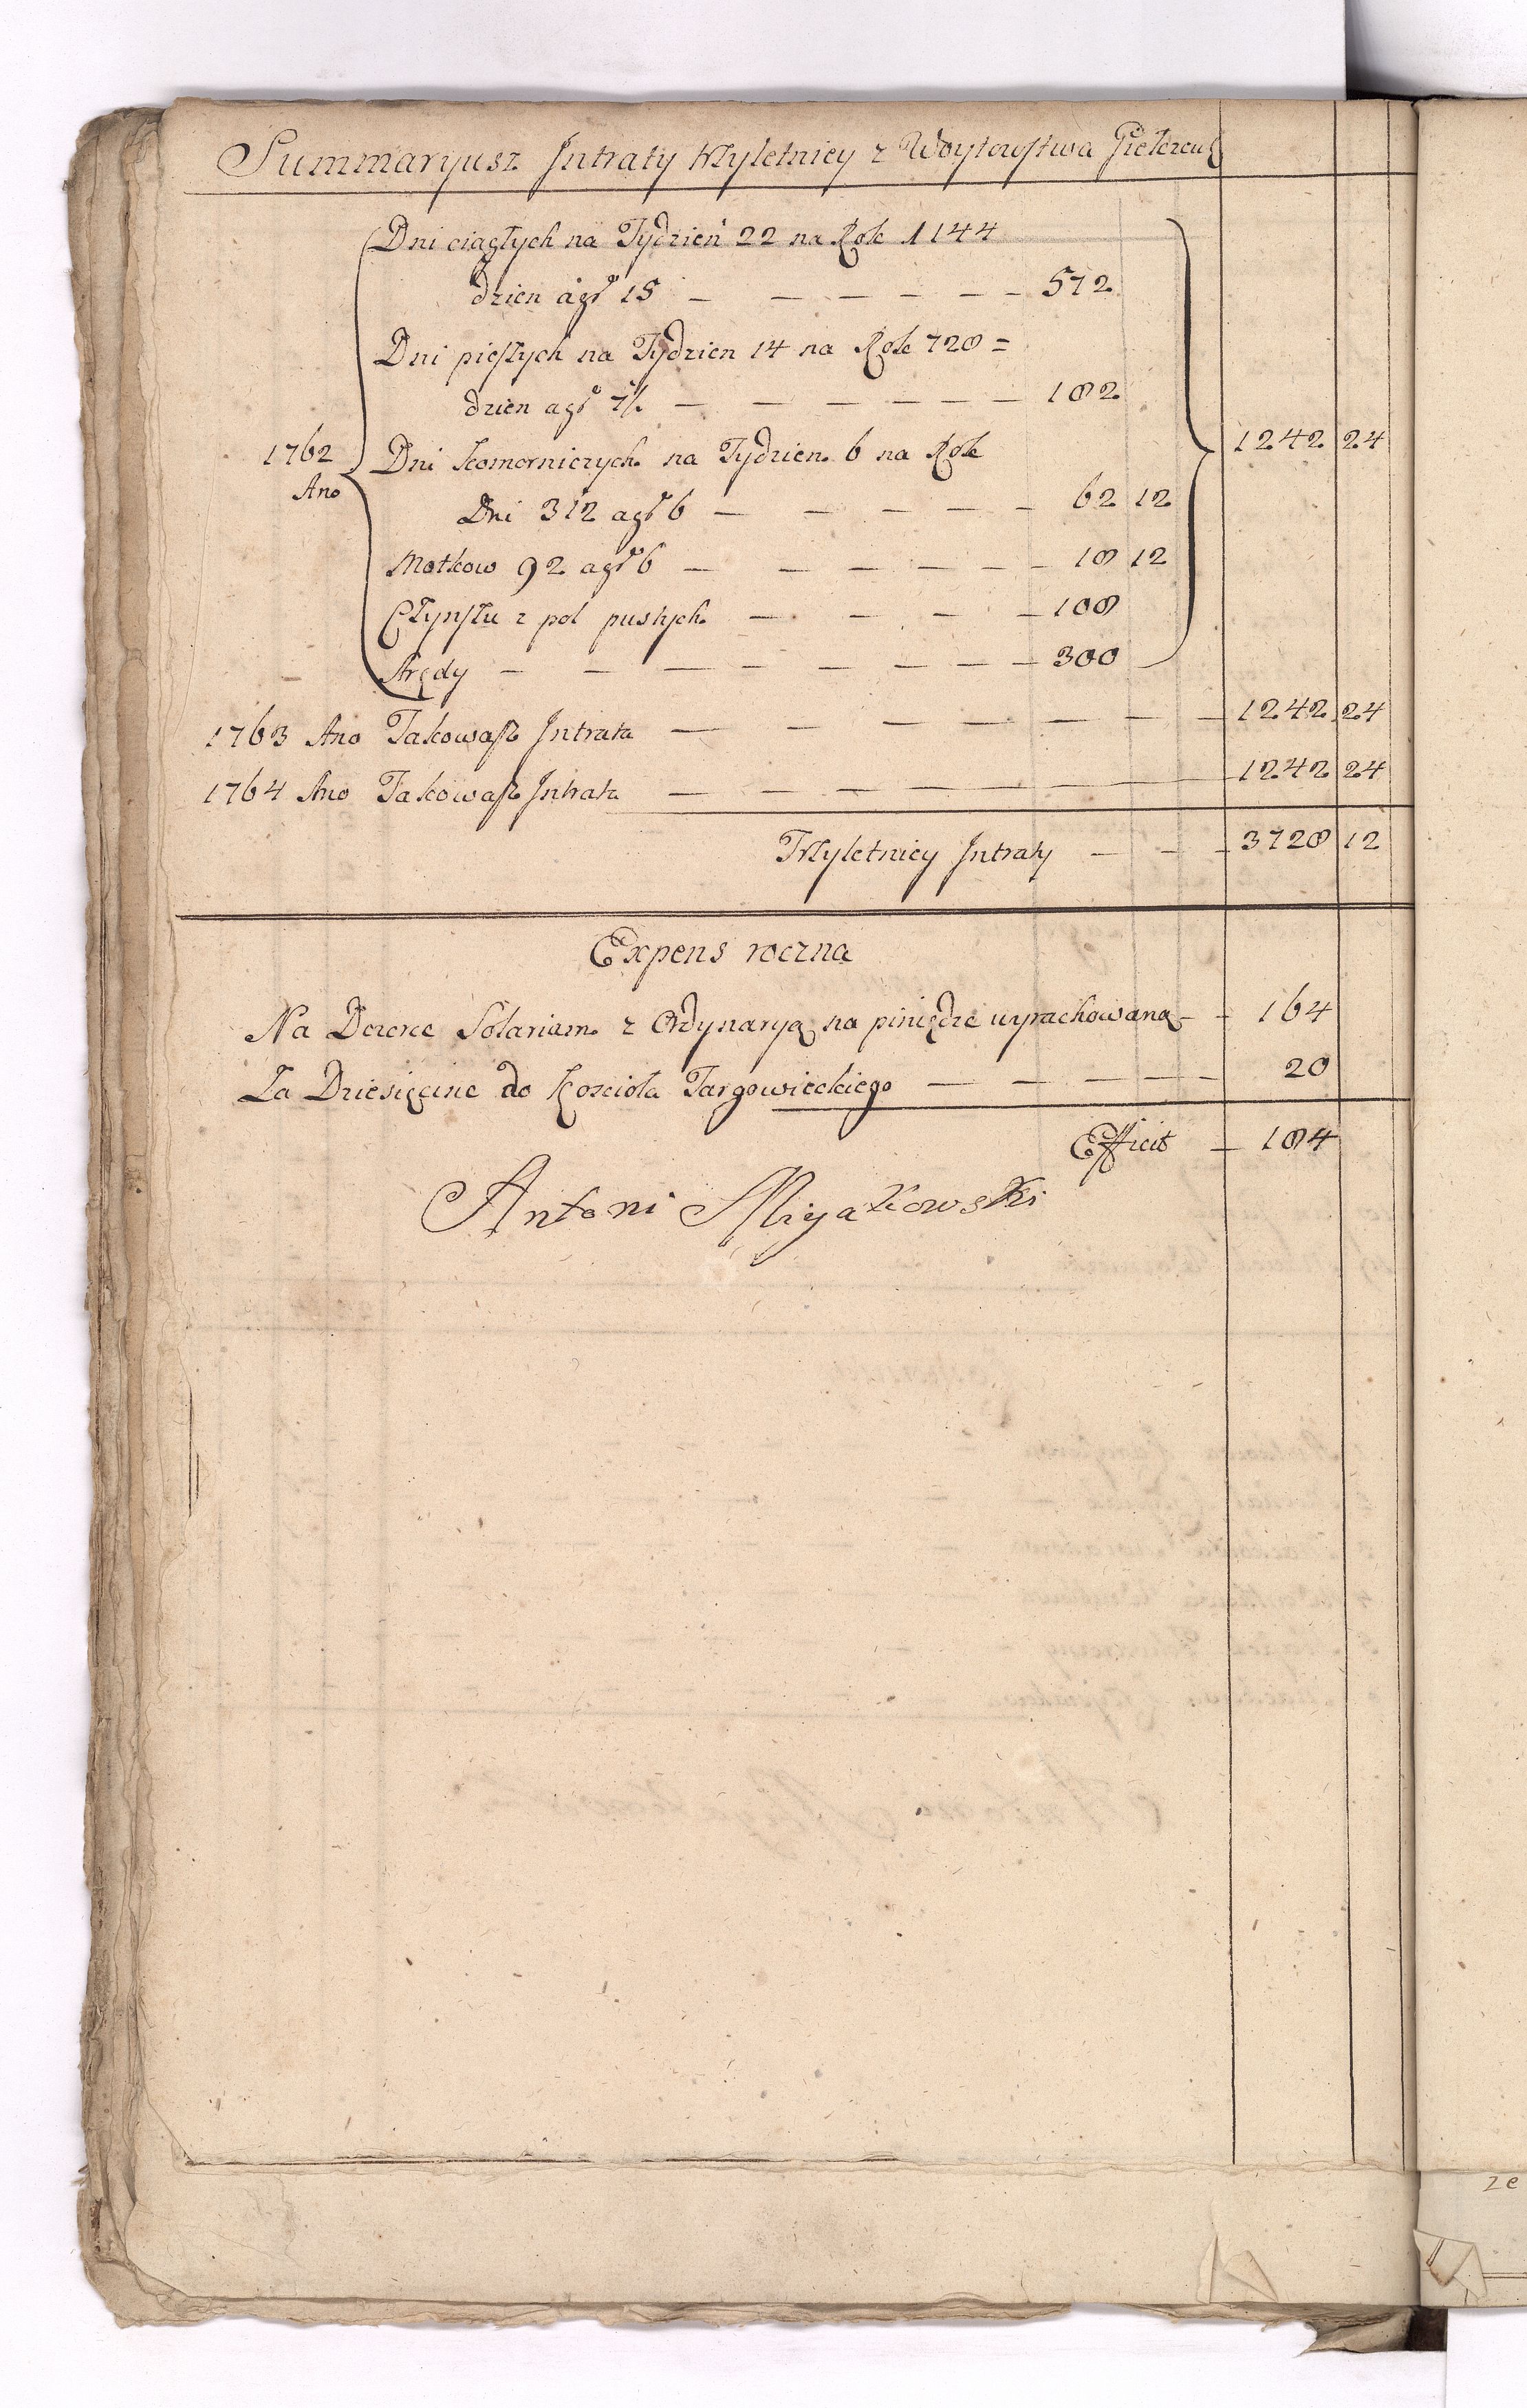 Summaryusz Jntraty trzyletniey z Woytowstwa
Dni ciągłych na Tydzień 22 na Rok 1144
dzien a gř 15 — — — — — — 572
Dni pieszych na Tydzien 14 na Rok 728 =
dzien a gř 7½ — — — — — — 182
1762 Dni komorniczych na Tydzien 6 na Rok 1242 24
Ano
Dni 312 a gř 6 — — — — — 62 12
Motkow 92 a gř 6 — — — — — — 18 12
Czynszu z pol pustych — — — — — 108
Arędy — — — — — — — — 300
1763 Ano Takowasz Jntrata — — — — — — — — 1242 24
1764 Ano Takowasz Jntrata — — — — — — — 1242 24
Trzyletniey Jntraty — — — 3728 12
Expens roczna
Na Dozorce Solarium z Ordynaryą na piniądze wyrachowaną — — 164
Za Dziesięcine do Kościoła Targowieckiego — — — — — 20
Efficit — 184
Antoni
ze